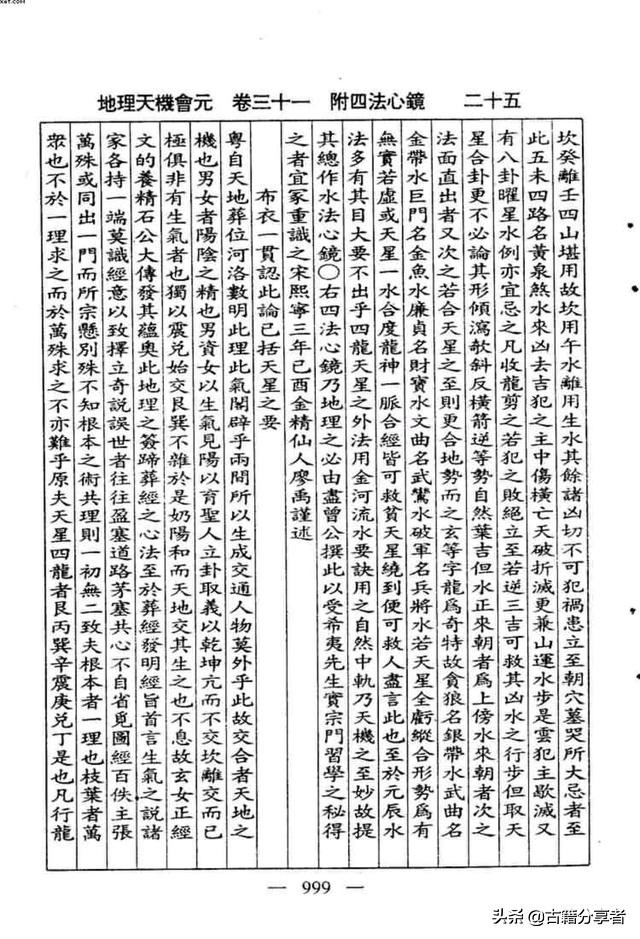 xet.com
地理天機會元　卷三十一　附四法心鏡　二十五
坎癸離壬四山堪用故坎用午水離用生水其餘諸凶切不可犯禍患立至朝穴墓哭所大忌者至
此五未四路名黃泉煞水來凶去吉犯之主中傷橫亡天破折滅更兼山運水步是雲犯主歇滅又
有八卦曜星水例亦宜忌之凡收龍剪之若犯之敗絕立至若逆三吉可救其凶水之行步但取天
星合卦更不必論其形傾瀉欹斜反橫箭逆等勢自然葉吉但水正來朝者爲上傍水來朝者次之
法面直出者又次之若合天星之至則更合地勢而之玄等字龍爲奇特故貪狼名銀帶水武曲名
金帶水巨門名金魚水廉貞名財寶水文曲名武鸞水破軍名兵將水若天星全虧縱合形勢爲有
無實若虛或天星一水合度龍神一脈合經皆可救貧天星繞到便可救人盡言此也至於元辰水
法多有其目大要不出乎四龍天星之外法用金河流水要訣用之自然中軌乃天機之至妙故提
其總作水法心鏡〇右四法心鏡乃地理之必由盡曾公撰此以受希夷先生實宗門習學之秘得
之者宜家重識之宋熙寧三年己酉金精仙人廖禹謹述
布衣一貫認此論已括天星之要
粵自天地葬位河洛數明此理此氣闔辟乎兩間所以生成交通人物莫外乎此故交合者天地之
機也男女者陽陰之精也男資女以生氣見陽以育聖人立卦取義以乾坤亢而不交坎離交而已
極俱非有生氣者也獨以震兌始交艮巽不雜於是奶陽和而天地交其生之也不息故玄女正經
文的養精石公大傳發其蘊奧此地理之簽蹄葬經之心法至於葬經發明經旨首言生氣之說諸
家各持一端莫識經意以致擇立奇說誤世者往往盈塞道路茅塞共心不自省覓圖經百佚主張
萬殊或同出一門而所宗懸別殊不知根本之術共理則一初無二致夫根本者一理也枝葉者萬
衆也不於一理求之而於萬殊求之不亦難乎原夫天星四龍者艮丙巽辛震庚兌丁是也凡行龍
— 999 —
头条 @古籍分享者